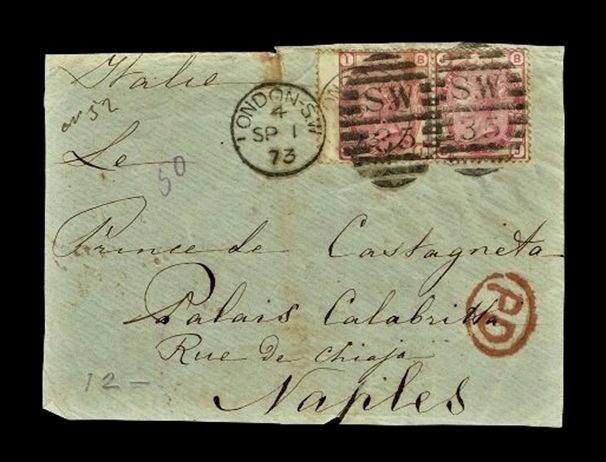 Italie
LONDON-S.W
4
SP 1
73
SW
35
SW
35
50
Le
Prince de Castagneta
Palais Calabritta
Rue de Chiaja
Naples
PD
12 -